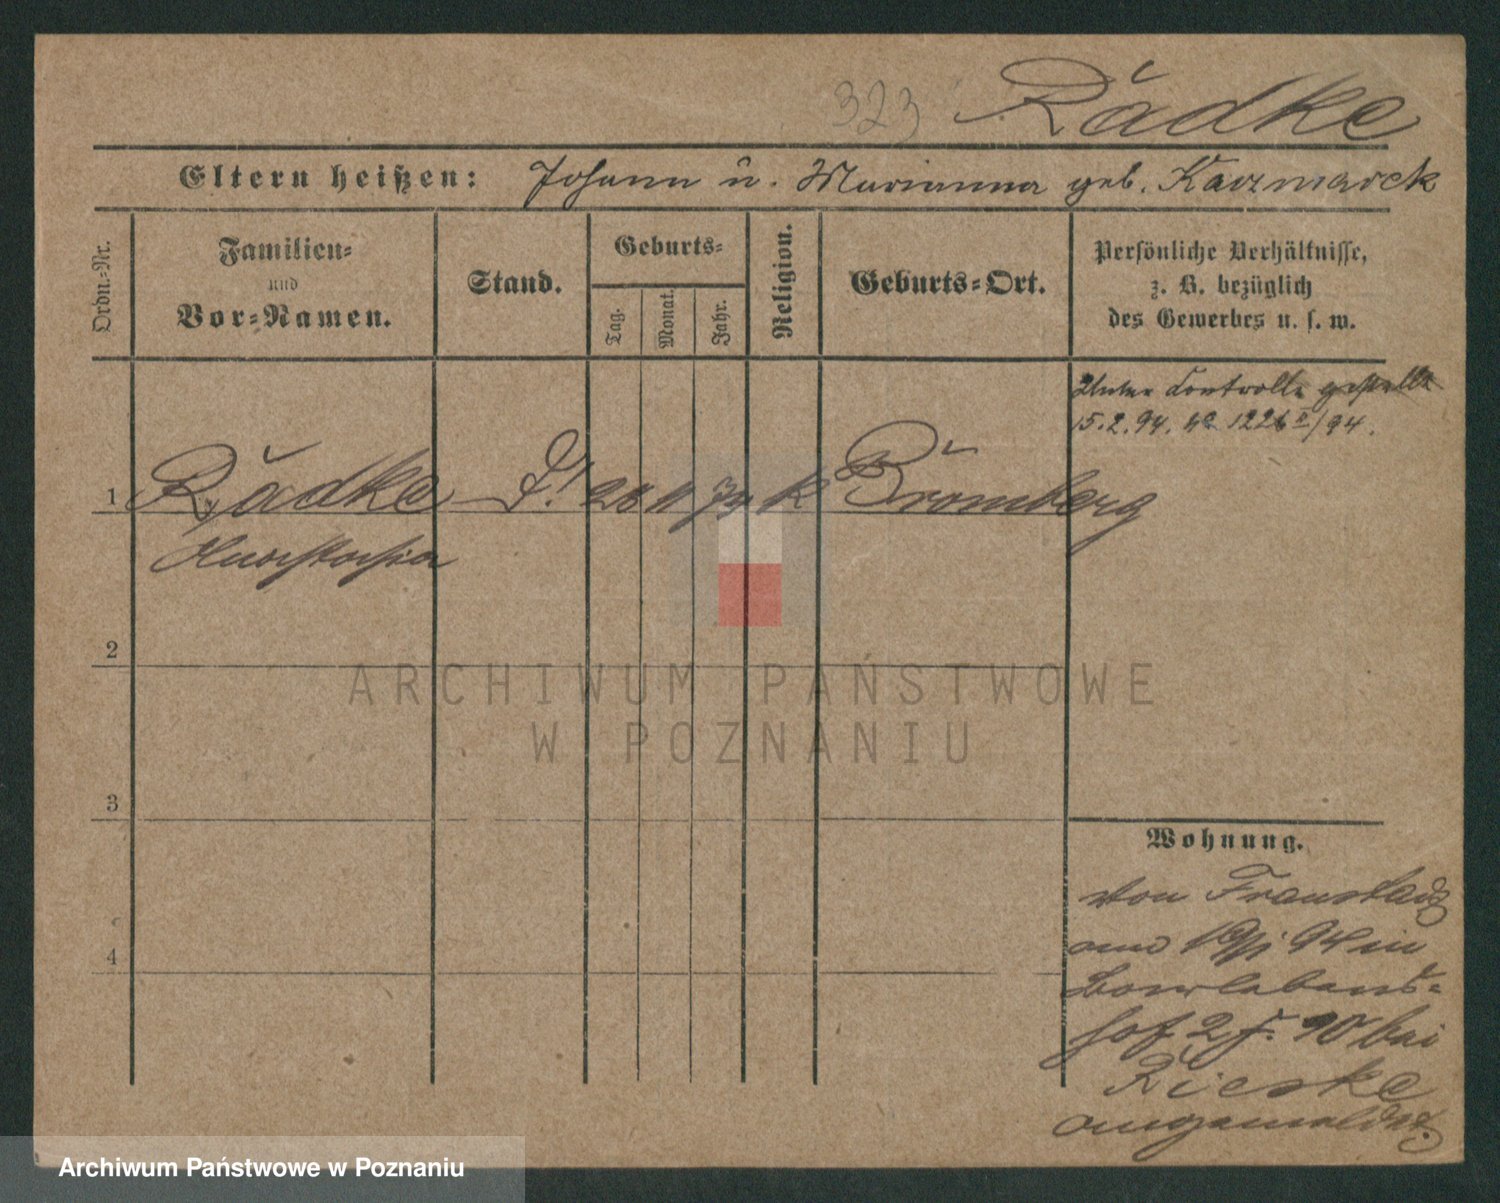 323 Rădke
Eltern heißen: Johann u. Marianna geb. Kaczmarek
Ordn.-Nr.
Familien-
und
Vor-Namen.
Stand.
Geburts-
Tag.
Monat.
Jahr.
Religion.
Geburts-Ort.
Persönliche Verhältnisse,
z. B. bezüglich
des Gewerbes u. s. w.
Unter Controlle gestellt
15.2.94. 1226 /94.
1 Rădke 28 11 79 k Bromberg
2
3
4
Wohnung.
von Fraustadt
am 94 in
hof 2 bei
Rieske
angemeldet.
ARCHIWUM PAŃSTWOWE
W POZNANIU
Archiwum Państwowe w Poznaniu